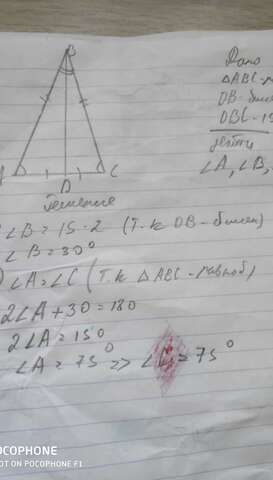 B
Дано
△ABC-
DB-бисс
DBC-15
найти
∠A, ∠B,
C
D
Решение
∠B = 15·2 (т.к DB-биссек)
∠B = 30°
) ∠A = ∠C (т.к △ABC-равноб)
2∠A + 30 = 180
2∠A = 150
∠A = 75° => ∠C = 75°
POCOPHONE
OT ON POCOPHONE F1